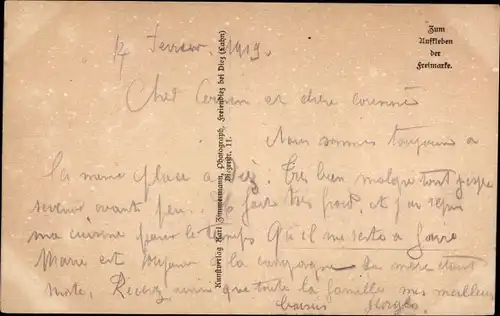 17 Fevrier 1919.
Zum
Aufkleben
der
Freimarke.
Cher Cousin et chère cousine
Nous sommes toujours a
la meme place a Diez. Tres bien malgre tout
avant peu. fait très froid, et j'ai
ma cuisine pour le temps qu'il me reste a faire
Marie est toujours la campagne. La mère étant
morte, Recevez ainsi que toute la famille mes meilleurs
baisers Georges
Kunstverlag Karl Zimmermann, Photograph, Freiendiez bei Diez (Lahn)
11.